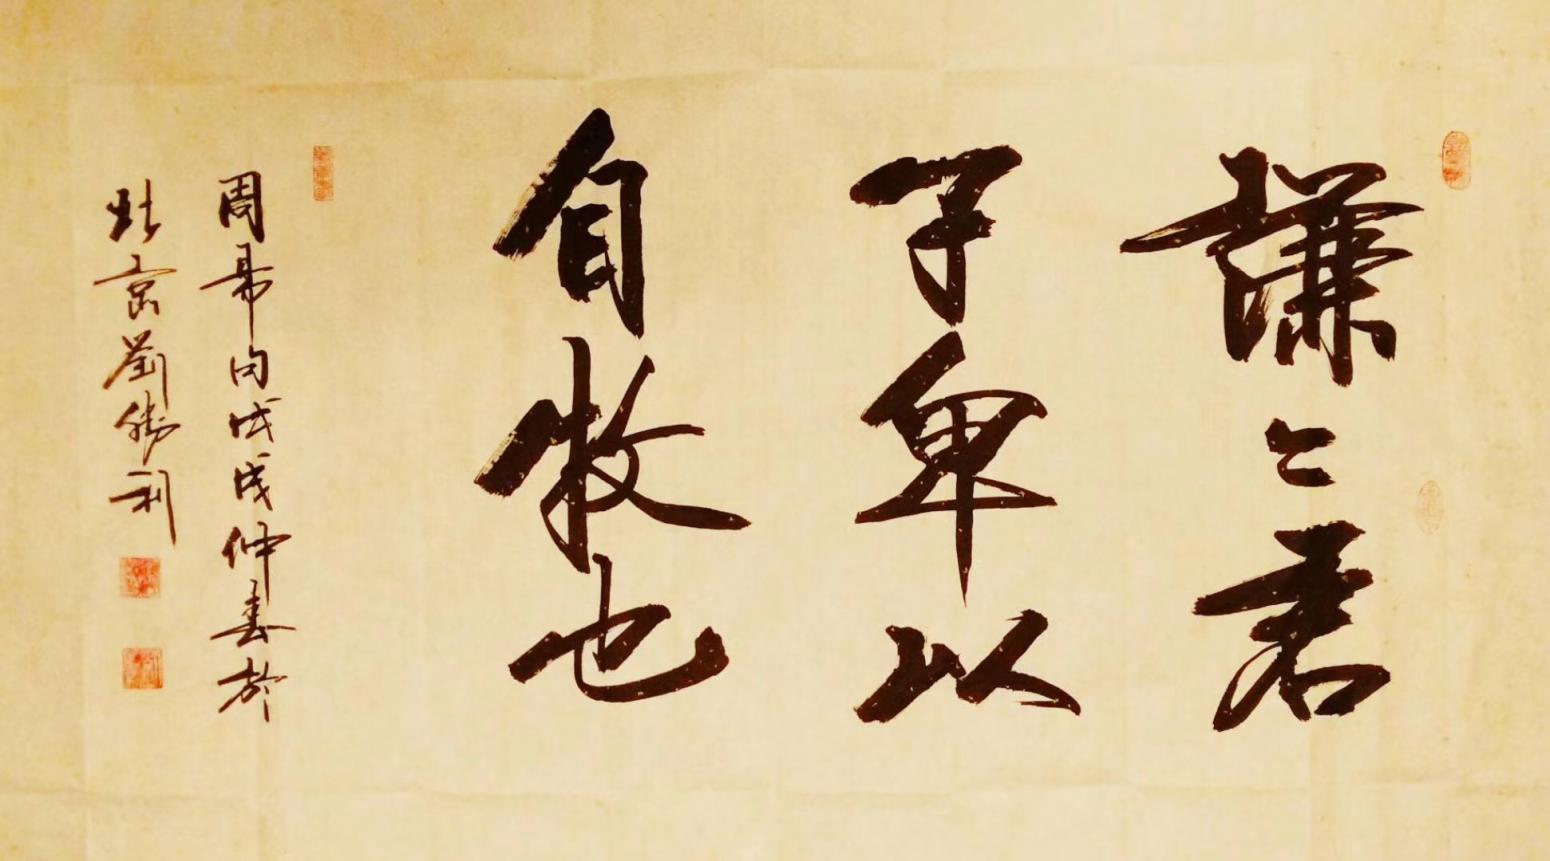 謙々君
子卑以
自牧也
周易句戊戌仲春於
北京劉勝利